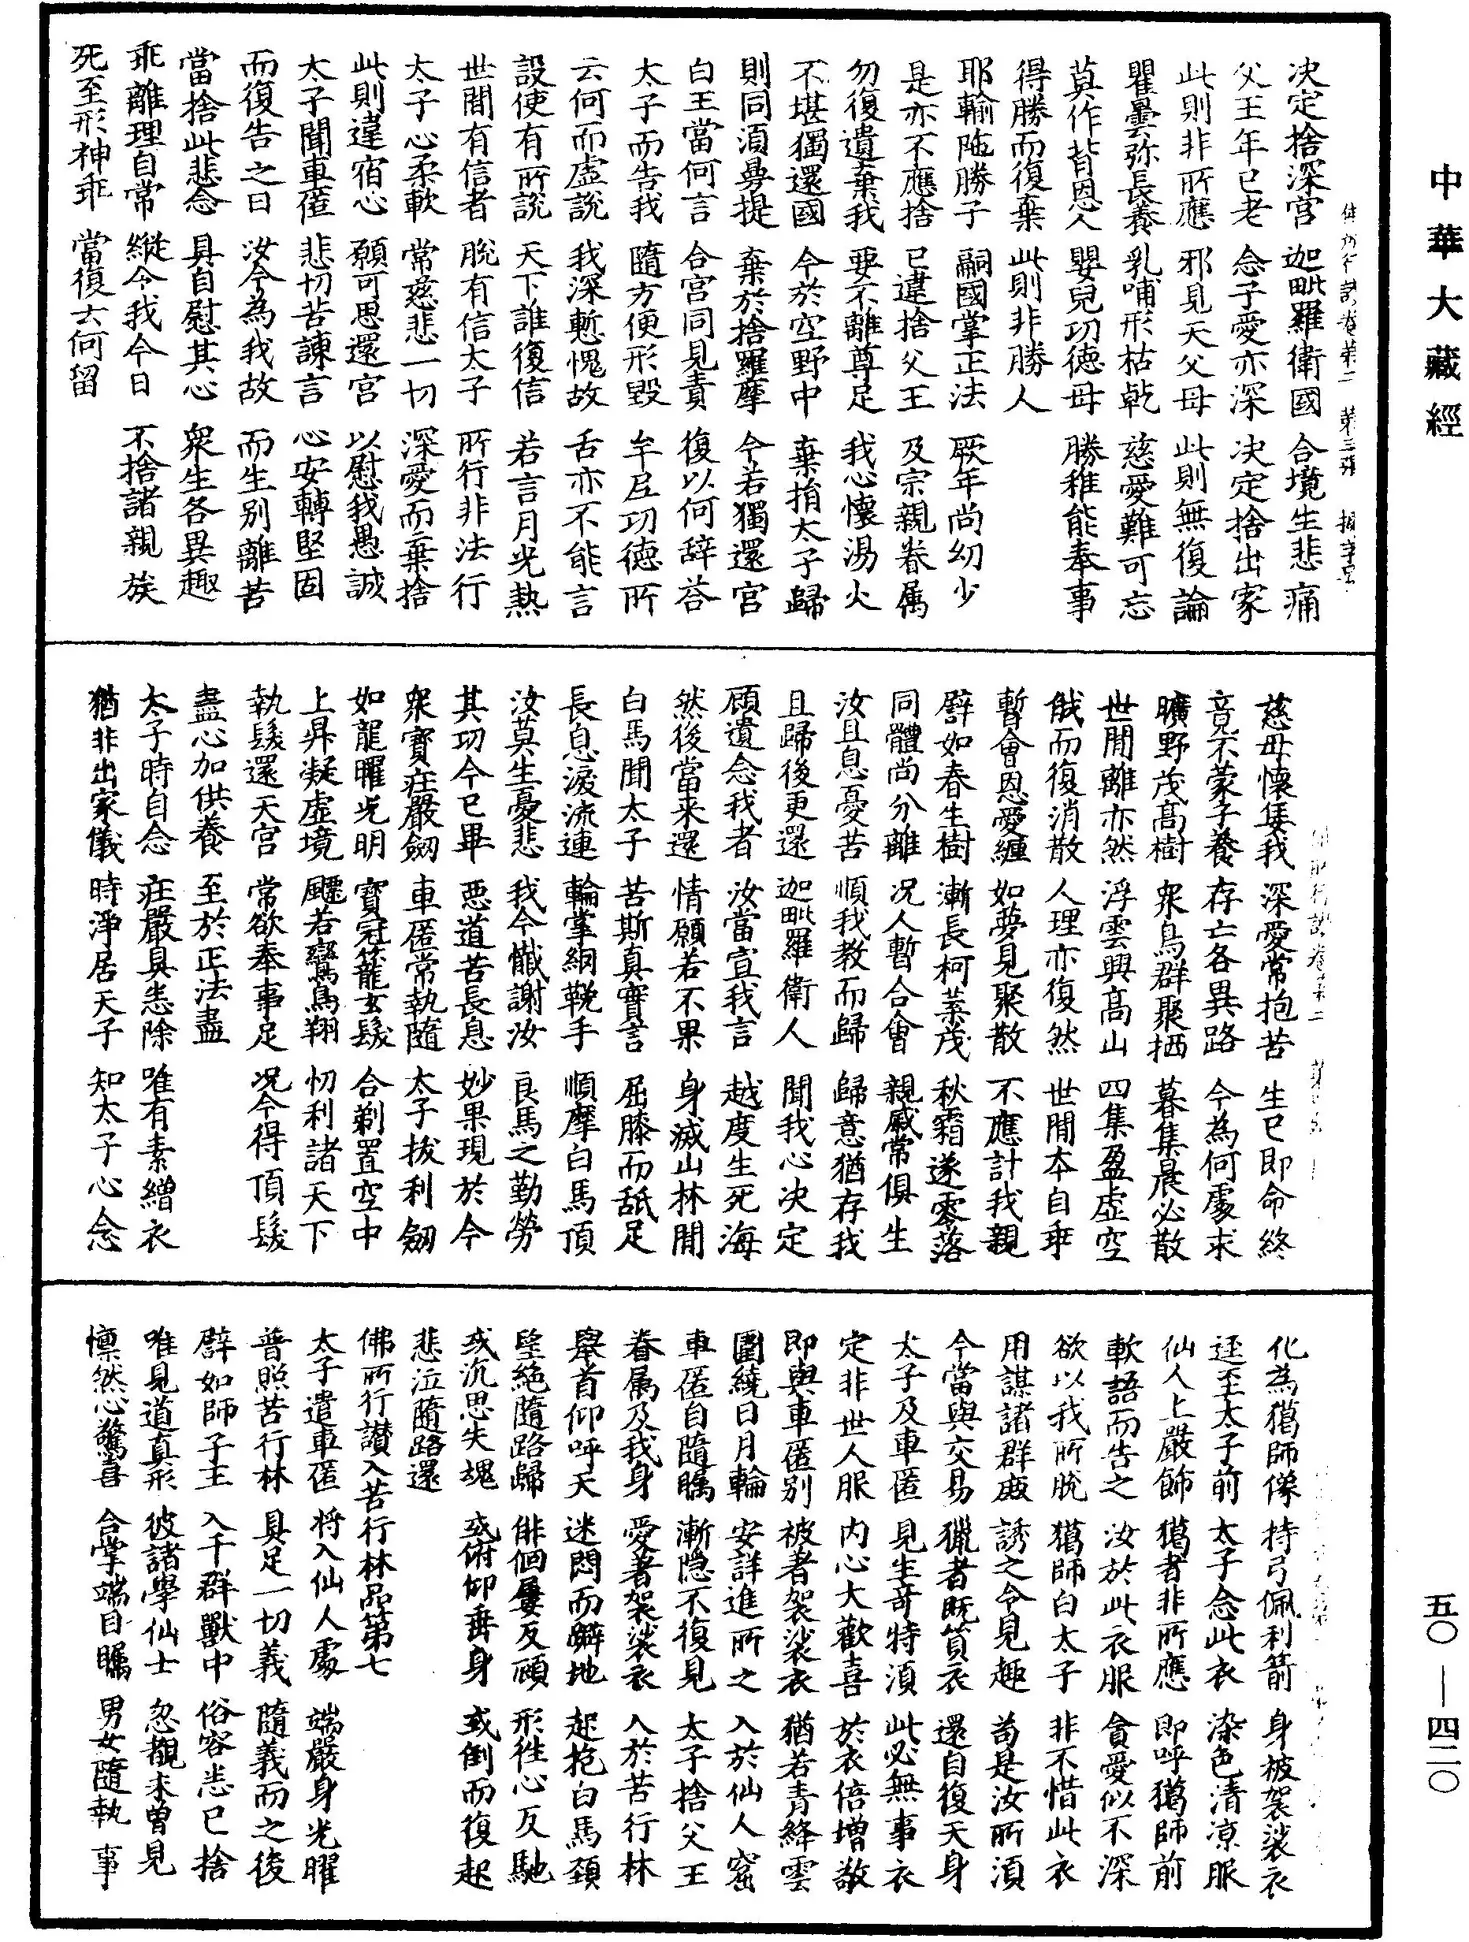 中華大藏經
决定捨深宮 迦毗羅衛國 合境生悲痛
父王年已老 念子愛亦深 决定捨出家
此則非所應 邪見天父母 此則無復論
瞿曇弥長養 乳哺形枯乾 慈愛難可忘
莫作背恩人 嬰兒功德母 勝稚能奉事
得勝而復棄 此則非勝人
耶輸陁勝子 嗣國掌正法 厥年尚幼少
是亦不應捨 已違捨父王 及宗親眷属
勿復遺棄我 要不離尊足 我心懷湯火
不堪獨還國 今於空野中 棄捐太子歸
則同湏鼻提 棄於捨羅摩 今若獨還宮
白王當何言 合宮同見責 復以何辞荅
太子而告我 隨方便形毀 牟尼功德所
云何而虛說 我深慙愧故 舌亦不能言
設使有所說 天下誰復信 若言月光熱
世間有信者 脫有信太子 所行非法行
太子心柔軟 常慈悲一切 深愛而棄捨
此則違宿心 願可思還宮 以慰我愚誠
太子聞車匿 悲切苦諫言 心安轉堅固
而復告之曰 汝今為我故 而生別離苦
當捨此悲念 具自慰其心 衆生各異趣
乖離理自常 縱令我今日 不捨諸親族
死至形神乖 當復云何留
慈母懷妊我 深愛常抱苦 生已即命終
竟不蒙子養 存亡各異路 今為何處求
曠野茂高樹 衆鳥群聚栖 暮集晨必散
世間離亦然 浮雲興高山 四集盈虛空
俄而復消散 人理亦復然 世間本自乖
暫會恩愛纏 如夢見聚散 不應計我親
譬如春生樹 漸長柯葉茂 秋霜遂零落
同體尚分離 况人暫合會 親戚常俱生
汝且息憂苦 順我教而歸 歸意猶存我
且歸後更還 迦毗羅衛人 聞我心决定
顧遺念我者 汝當宣我言 越度生死海
然後當来還 情願若不果 身滅山林間
白馬聞太子 苦斯真實言 屈膝而舐足
長息淚流連 輪掌網鞔手 順摩白馬頂
汝莫生憂悲 我今懺謝汝 良馬之勤勞
其功今已畢 惡道苦長息 妙果現於今
衆寶莊嚴劒 車匿常執隨 太子拔利劒
如龍曜光明 寶冠籠玄髮 合剃置空中
上昇凝虛境 飃若鸞鳥翔 忉利諸天下
執髮還天宮 常欲奉事足 况今得頂髮
盡心加供養 至於正法盡
太子時自念 莊嚴具悉除 唯有素繒衣
猶非出家儀 時淨居天子 知太子心念
化為獦師像 持弓佩利箭 身被袈裟衣
逕至太子前 太子念此衣 染色清凉服
仙人上嚴飾 獦者非所應 即呼獦師前
軟語而告之 汝於此衣服 貪愛似不深
欲以我所脫 獦師白太子 非不惜此衣
用謀諸群鹿 誘之令見趣 苟是汝所湏
今當與交易 獵者既貿衣 還自復天身
太子及車匿 見生奇特湏 此必無事衣
定非世人服 内心大歡喜 於衣倍增敬
即與車匿別 被著袈裟衣 猶若青絳雲
圍繞日月輪 安詳進所之 入於仙人窟
車匿自隨矚 漸隐不復見 太子捨父王
眷属及我身 愛著袈裟衣 入於苦行林
舉首仰呼天 迷悶而躃地 起抱白馬頚
望絕隨路歸 俳佪屢反顧 形徃心反馳
或沉思失魂 或俯仰垂身 或倒而復起
悲泣隨路還
佛所行讃入苦行林品第七
太子遣車匿 將入仙人處 端嚴身光曜
普照苦行林 具足一切義 隨義而之後
譬如師子王 入千群獸中 俗容悉已捨
唯見道真形 彼諸學仙士 忽覩未曾見
懔然心驚喜 合掌端目矚 男女隨執事
五〇—四二〇